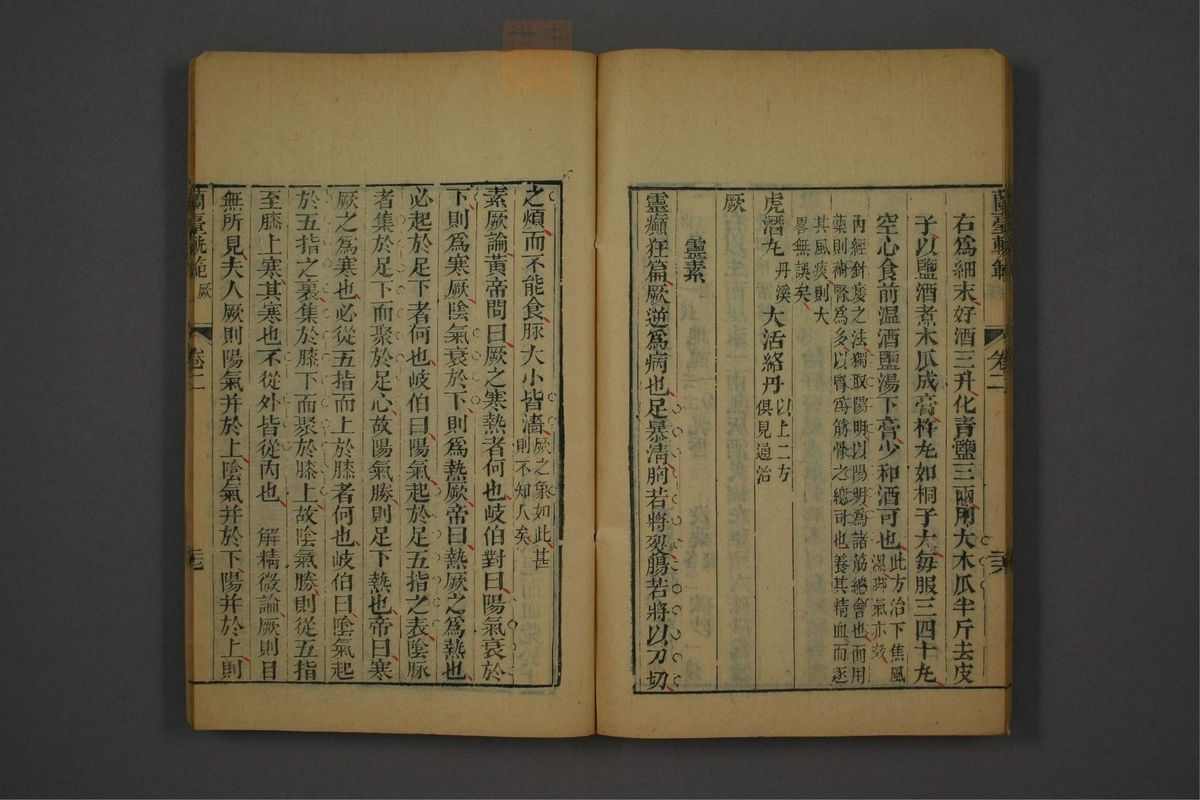 蘭臺軌範
卷二
右為細末好酒三升化青鹽三兩大木瓜半斤去皮
子以鹽酒煮木瓜成膏杵丸如桐子大每服三四十丸
空心食前溫酒鹽湯下膏少和酒可也此方治下焦風
濕脚氣亦效
內經針痿之法獨取陽明以陽明為諸筋總會也而用
藥則補腎為多以腎為筋骨之總司也養其精血而逐
其風痰則大
畧無誤矣
虎潛丸丹溪大活絡丹以上二方
俱見通治
厥
靈素
靈癲狂篇厥逆為病也足暴清胸若將裂腸若將以刀切
之煩而不能食脉大小皆濇厥之象如此甚
則不知人矣
素厥論黃帝問曰厥之寒熱者何也岐伯對曰陽氣衰於
下則為寒厥陰氣衰於下則為熱厥帝曰熱厥之為熱也
必起於足下者何也岐伯曰陽氣起於足五指之表陰脉
者集於足下而聚於足心故陽氣勝則足下熱也帝曰寒
厥之為寒也必從五指而上於膝者何也岐伯曰陰氣起
於五指之裏集於膝下而聚於膝上故陰氣勝則從五指
至膝上寒其寒也不從外皆從內也 解精微論厥則目
無所見夫人厥則陽氣并於上陰氣并於下陽并於上則
蘭臺軌範 厥
卷二